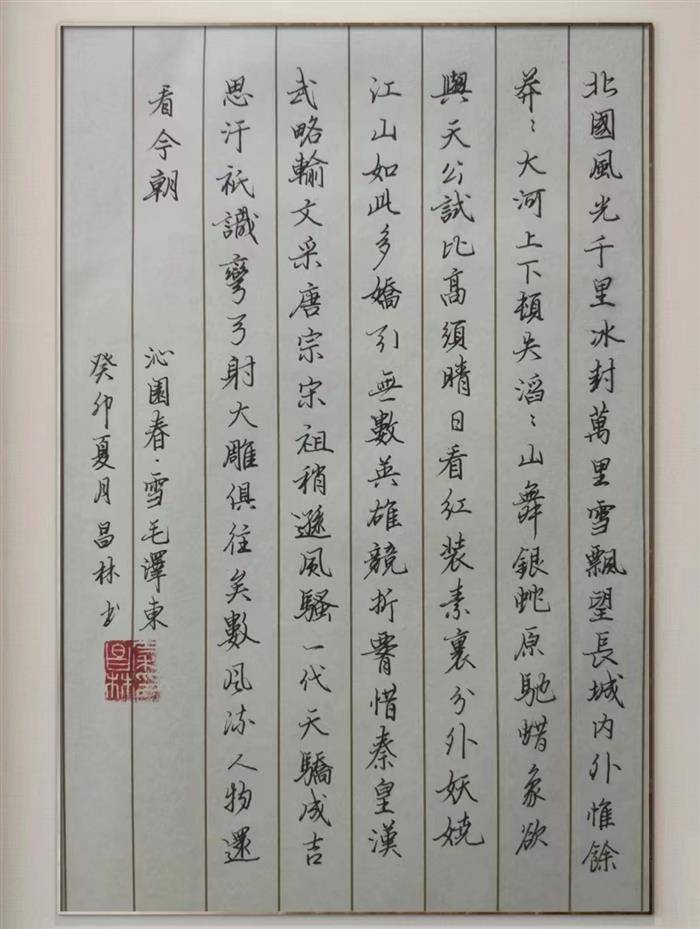 北國風光千里冰封萬里雪飄望長城内外惟餘
莽〻大河上下頓失滔〻山舞銀蛇原馳蜡象欲
與天公試比高須晴日看紅装素裹分外妖嬈
江山如此多嬌引無數英雄競折腰惜秦皇漢
武略輸文采唐宗宋祖稍遜風騷一代天驕成吉
思汗祇識彎弓射大雕俱往矣數風流人物還
看今朝
沁園春·雪毛澤東
癸卯夏月昌林书
昌林